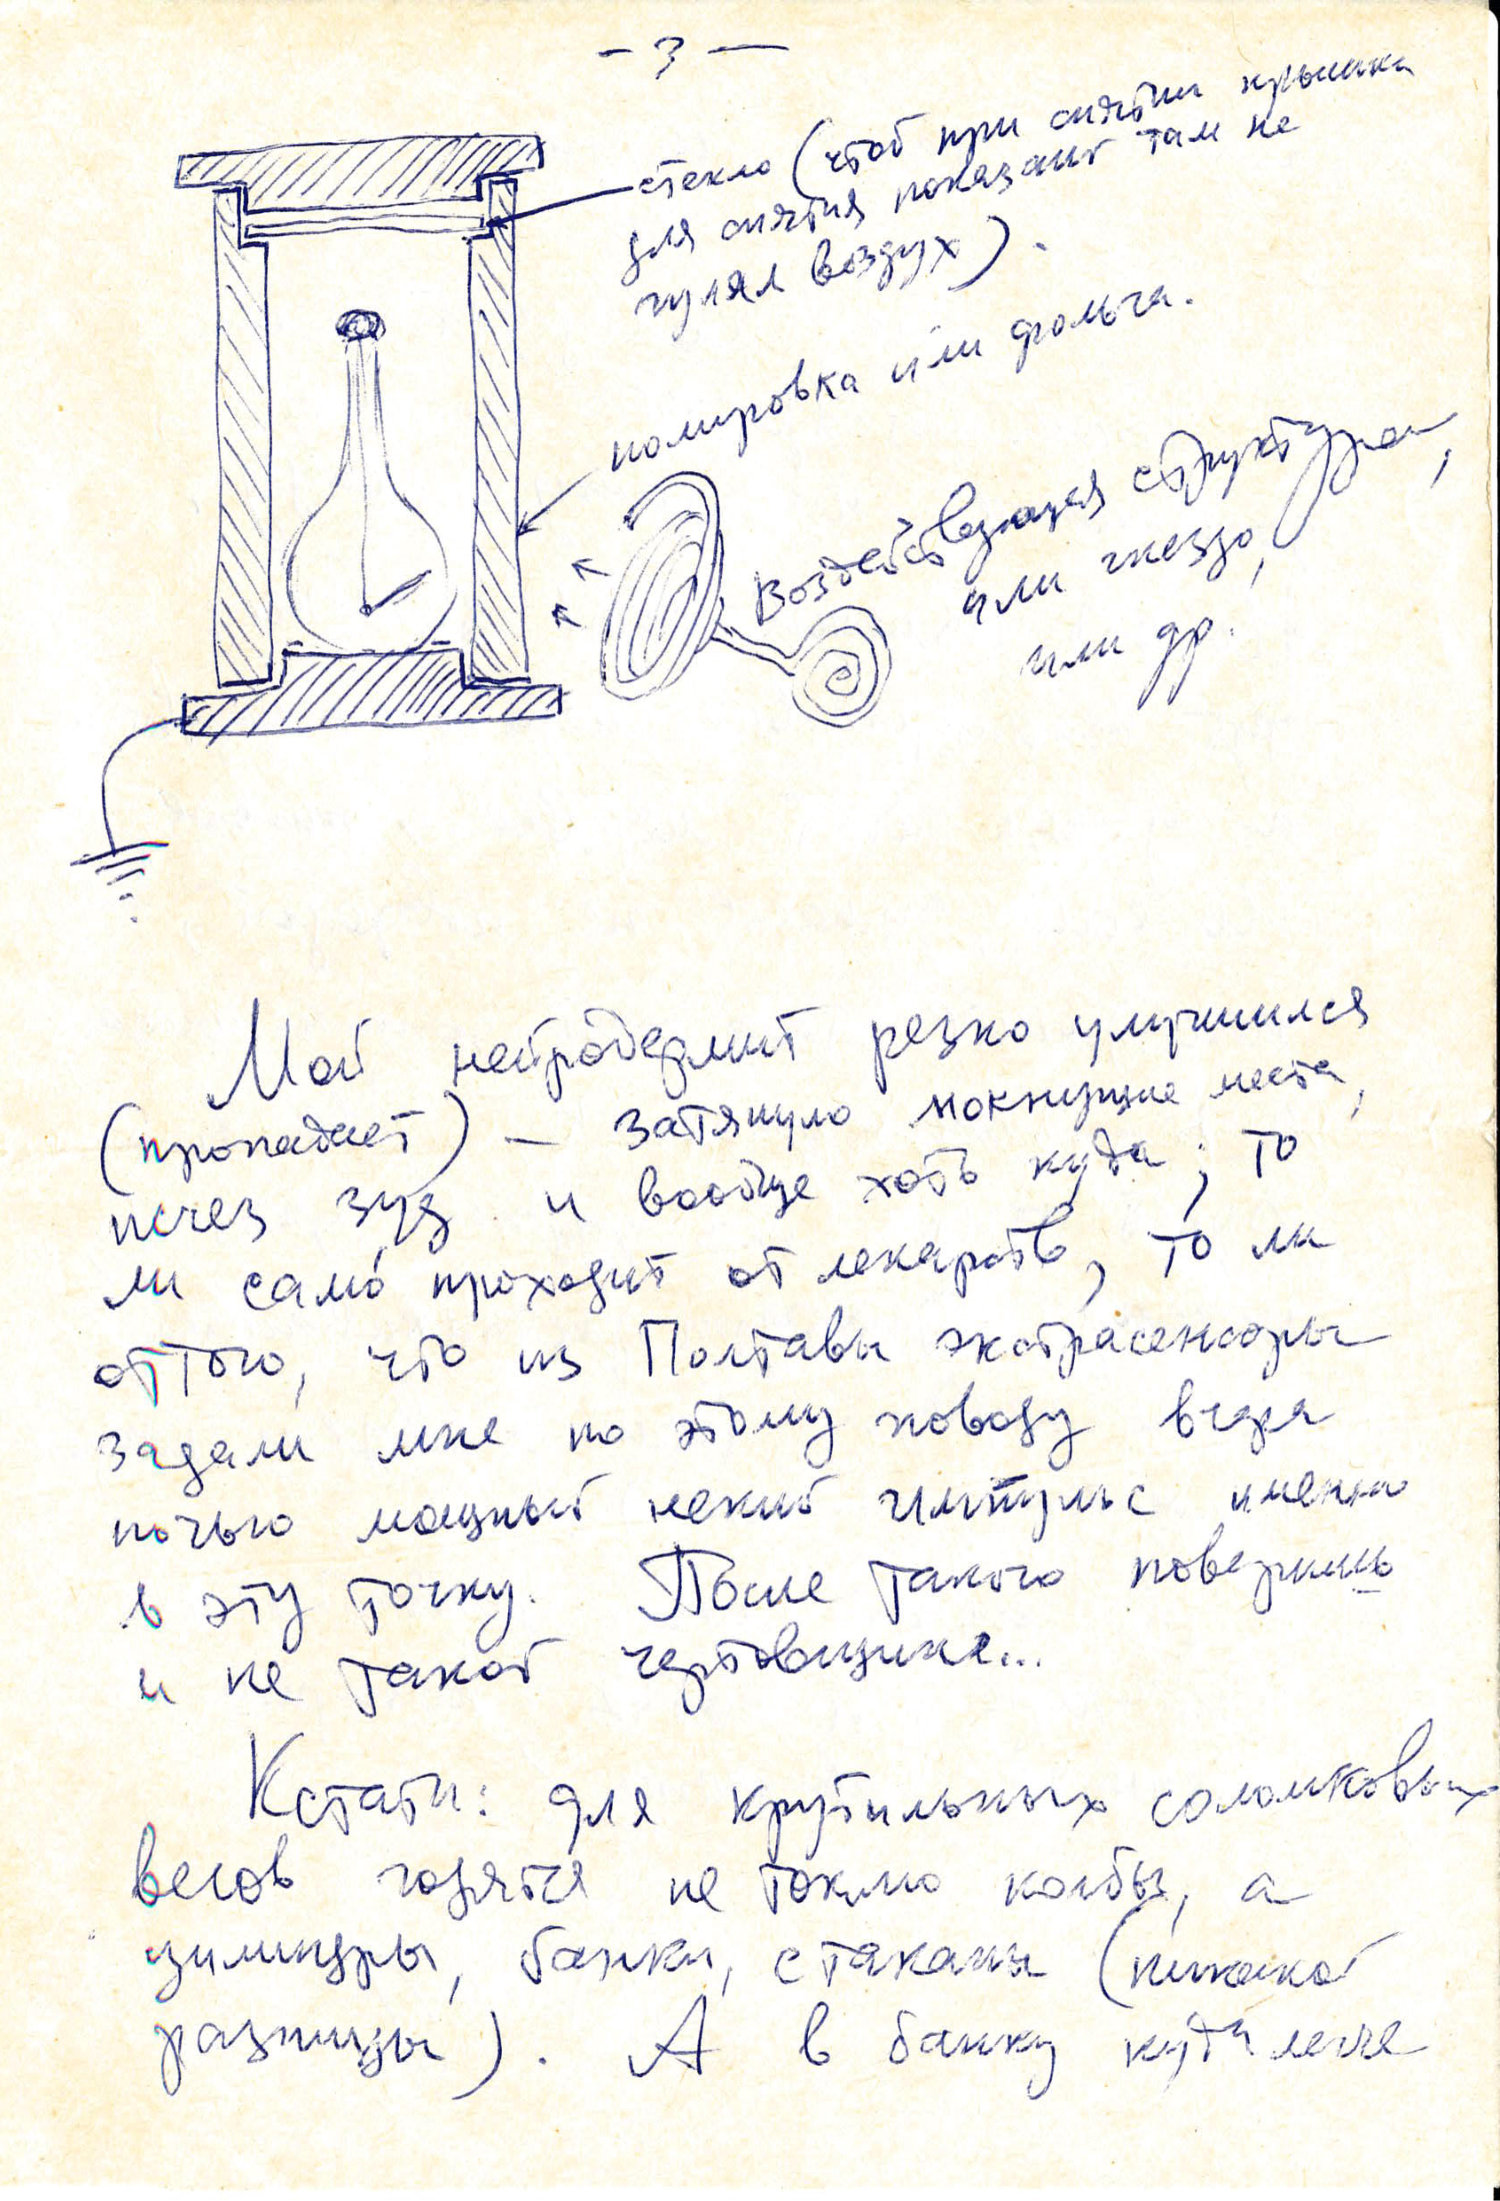 – 3 –
стекло (чтоб при снятии крышки
для снятия показаний там не
гулял воздух).
полировка или фольга.
Воздействующая структура,
или гнездо,
или др.
Мой нейродермит резко улучшился
(пропадает) – затянуло мокнущие места,
исчез зуд и вообще хоть куда; то
ли само́ проходит от лекарств, то ли
оттого, что из Полтавы экстрасенсоры
задали мне по этому поводу вчера
ночью мощный некий импульс именно
в эту точку. После такого поверишь
и не такой чертовщине...
Кстати: для крутильных соломковых
весов годятся не токмо колбы, а
цилиндры, банки, стаканы (никакой
разницы). А в банку куда легче